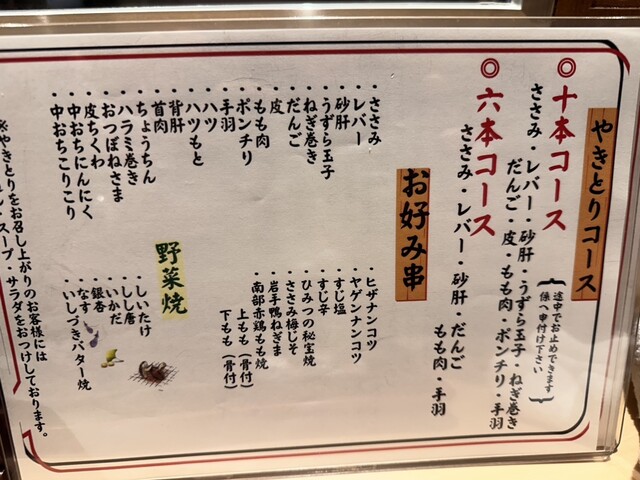 やきとりコース
◎十本コース
ささみ・レバー・砂肝・うずら玉子・ねぎ巻き
だんご・皮・もも肉・ボンチリ・手羽
途中でお止めできます
係へ申付け下さい
◎六本コース
ささみ・レバー・砂肝・だんご
もも肉・手羽
お好み串
・ささみ
・レバー
・砂肝
・うずら玉子
・ねぎ巻き
・だんご
・皮
・もも肉
・ボンチリ
・手羽
・ハツ
・ハツもと
・背肝
・首肉
・ちょうちん
・ハラミ巻き
・おつぼねさま
・皮ちくわ
・中おちにんにく
・中おちこりこり
・ヒザナンコツ
・ヤゲンナンコツ
・すじ塩
・すじ辛
・ひみつの秘宝焼
・ささみ梅じそ
・岩手鴨ねぎま
・南部赤鶏もも焼
上もも(骨付)
下もも(骨付)
野菜焼
・しいたけ
・しし唐
・いかだ
・銀杏
・なす
・いしづきバター焼
※やきとりをお召し上がりのお客様には
スープ・サラダをおつけしております。